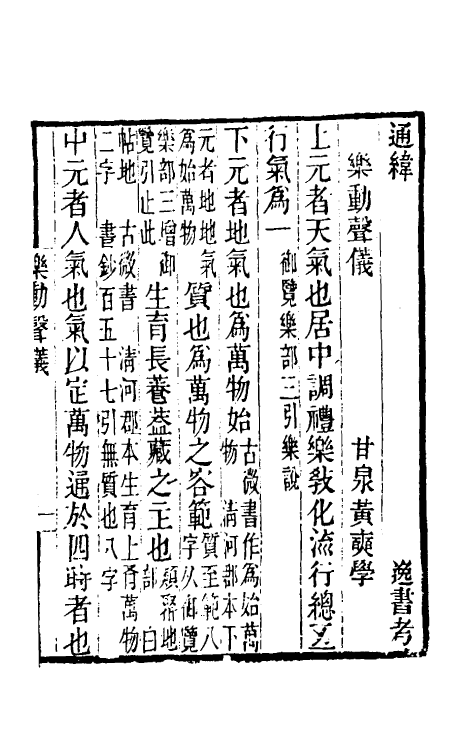 通緯　逸書考
樂動聲儀　甘泉黃奭學
上元者天氣也居中調禮樂敎化流行總五
行氣爲一御覽樂部三引樂說
下元者地氣也爲萬物始古微書作爲始萬物　淸河郡本下
元者地地氣爲始萬物質也爲萬物之容範質至範八字从御覽
樂部三增御覽引止此生育長養蓋藏之主也類聚地部　白
帖地　古微書　淸河郡本生育上有萬物
二字　書鈔百五十七引無質也八字
中元者人氣也氣以定萬物通於四時者也
樂動聲儀　一